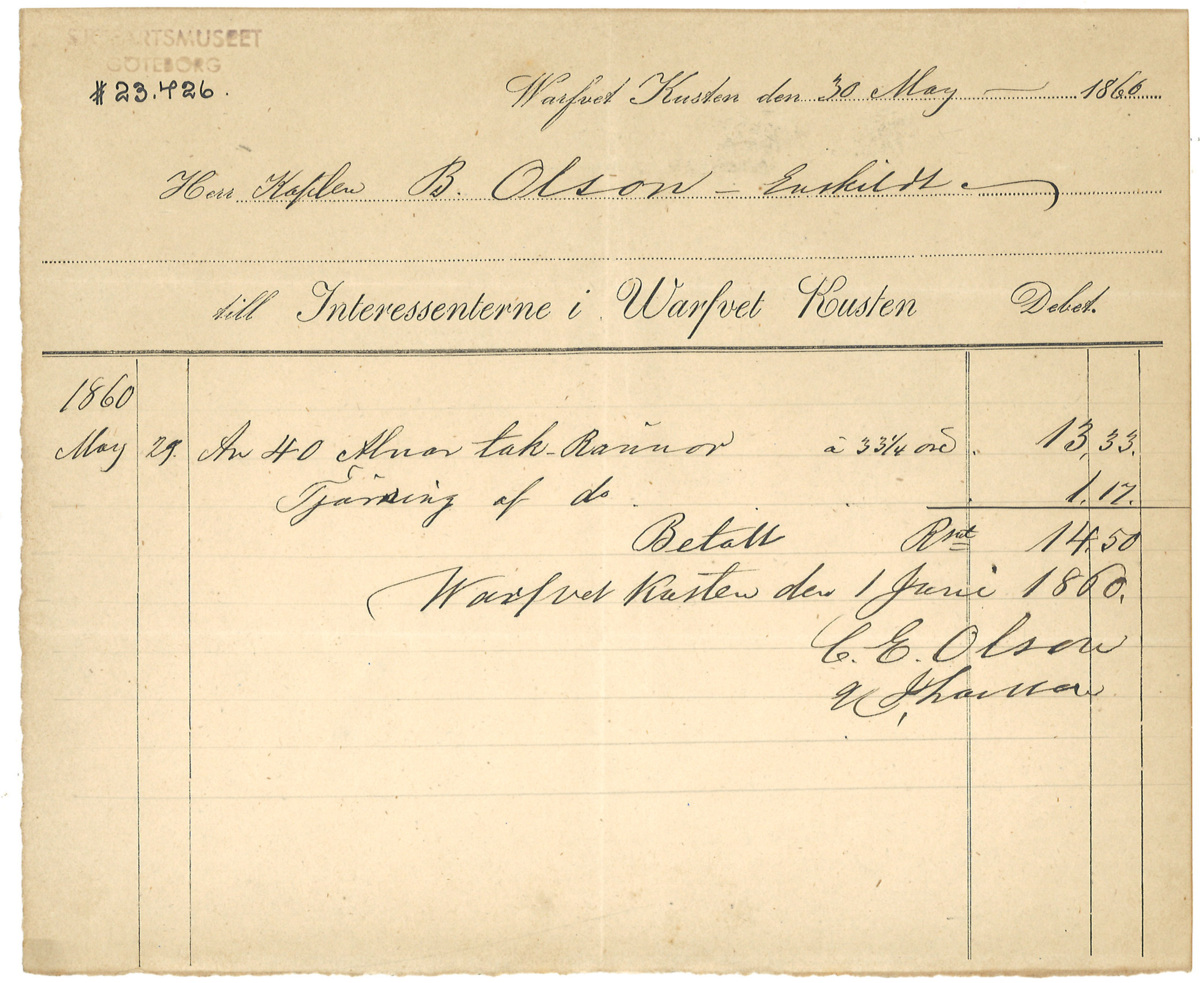 SJÖFARTSMUSEET
GÖTEBORG
# 23.426.
Warfvet Kusten den 30 May 1860
Herr Kapten B. Olson - Enskildt
till Interessenterne i Warfvet Kusten Debet.
1860
May 29. An 40 Alnar tak-Rännor à 33 1/4 öre 13,33.
Tjärning af do 1,17.
Betalt Rmt 14,50
Warfvet Kusten den 1 Juni 1860.
C. E. Olson